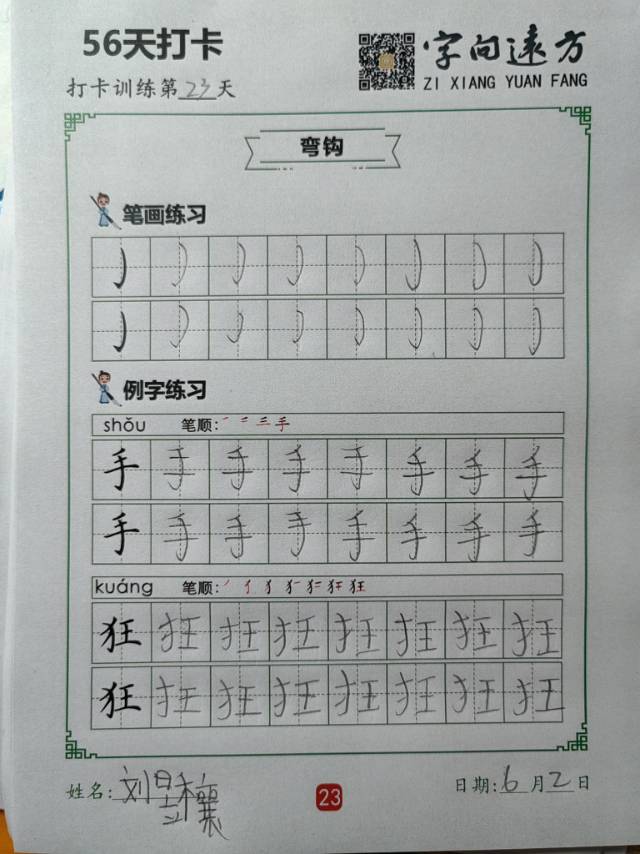 56天打卡
字向远方
打卡训练第23天
ZI XIANG YUAN FANG
弯钩
笔画练习
例字练习
shǒu 笔顺:一 二 三 手
手 手 手 手 手 手 手 手
手 手 手 手 手 手 手 手
kuáng 笔顺:
狂 狂 狂 狂 狂 狂 狂 狂
狂 狂 狂 狂 狂 狂 狂 狂
姓名:刘
23
日期:6月2日